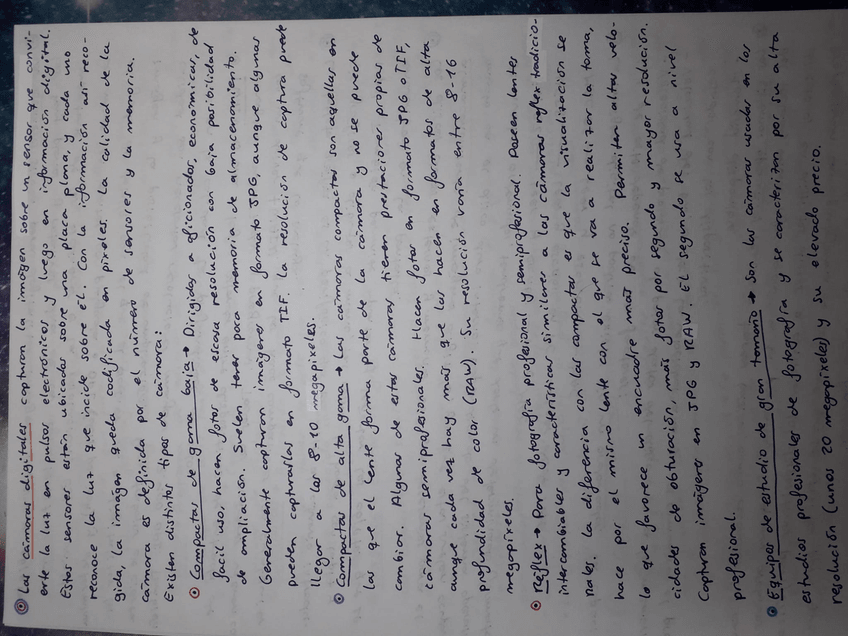 Las cámaras digitales capturan la imágen sobre un sensor que convi-
erte la luz en pulsos electrónicos y luego en información digital.
Estos sensores están ubicados sobre una placa plana, y cada uno
reconoce la luz que incide sobre él. Con la información así reco-
gida, la imágen queda codificada en pixeles. La calidad de la
cámara es definida por el número de sensores y la memoria.
Existen distintos tipos de cámara:
Compactas de gama baja → Dirigidas a aficionados, economicas, de
facil uso, hacen fotos de escasa resolución con baja posibilidad
de ampliación. Suelen tener poca memoria de almacenamiento.
Generalmente capturan imágenes en formato JPG, aunque algunas
pueden capturarlas en formato TIF. La resolución de captura puede
llegar a los 8-10 megapixeles.
Compactas de alta gama → Las cámaras compactas son aquellas en
las que el lente forma parte de la cámara y no se puede
cambiar. Algunas de estas cámaras tienen prestaciones propias de
cámaras semiprofesionales. Hacen fotos en formato JPG o TIF,
aunque cada vez hay más que las hacen en formatos de alta
profundidad de color (RAW). Su resolución varía entre 8-16
megapíxeles.
Réflex → Para fotografía profesional y semiprofesional. Poseen lentes
intercambiables y características similares a las cámaras reflex tradicio-
nales. La diferencia con las compactas es que la visualización se
hace por el mismo lente con el que se va a realizar la toma,
lo que favorece un encuadre más preciso. Permiten altas velo-
cidades de obturación, más fotos por segundo y mayor resolución.
Capturan imágenes en JPG y RAW. El segundo se usa a nivel
profesional.
Equipos de estudio de gran tamaño → Son las cámaras usadas en los
estudios profesionales de fotografía y se caracterizan por su alta
resolución (unos 20 megapíxeles) y su elevado precio.